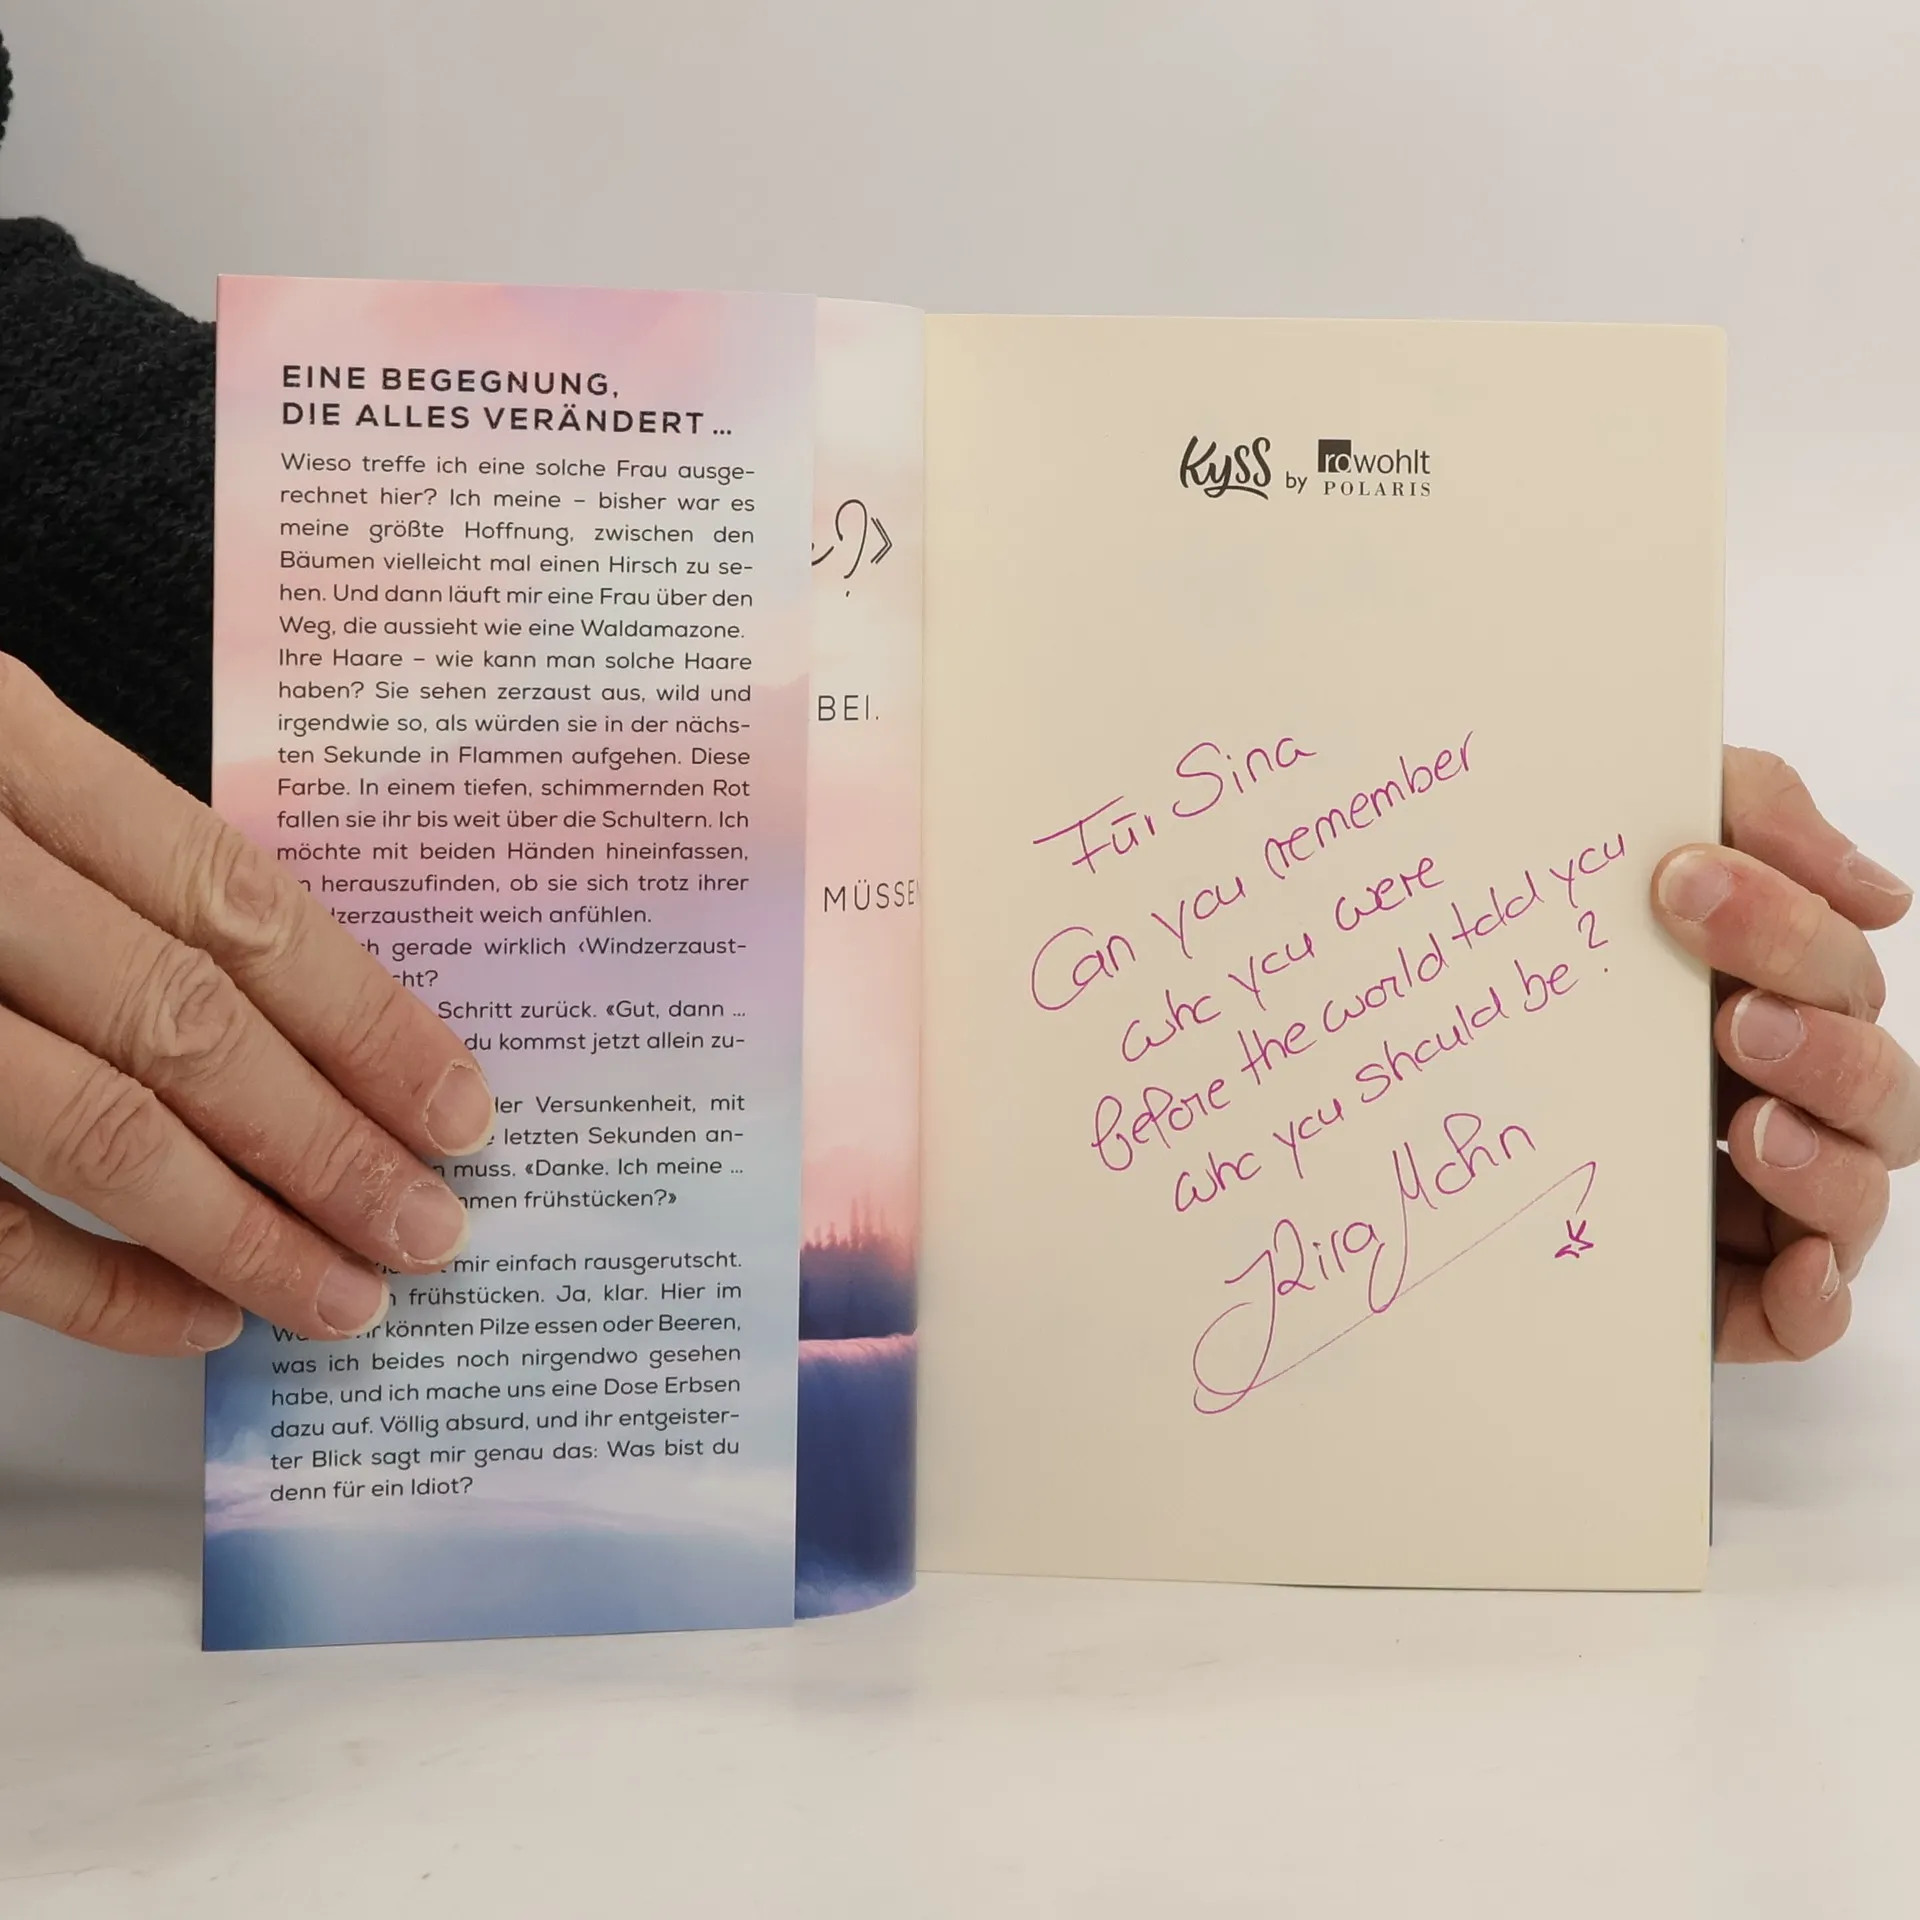 EINE BEGEGNUNG,
DIE ALLES VERÄNDERT ...
Wieso treffe ich eine solche Frau ausge-
rechnet hier? Ich meine – bisher war es
meine größte Hoffnung, zwischen den
Bäumen vielleicht mal einen Hirsch zu se-
hen. Und dann läuft mir eine Frau über den
Weg, die aussieht wie eine Waldamazone.
Ihre Haare – wie kann man solche Haare
haben? Sie sehen zerzaust aus, wild und
irgendwie so, als würden sie in der nächs-
ten Sekunde in Flammen aufgehen. Diese
Farbe. In einem tiefen, schimmernden Rot
fallen sie ihr bis weit über die Schultern. Ich
möchte mit beiden Händen hineinfassen,
herauszufinden, ob sie sich trotz ihrer
weich anfühlen.
gerade wirklich ‹Windzerzaust-
Schritt zurück. «Gut, dann ...
du kommst jetzt allein zu-
Versunkenheit, mit
letzten Sekunden an-
muss. «Danke. Ich meine ...
frühstücken?»
mir einfach rausgerutscht.
frühstücken. Ja, klar. Hier im
könnten Pilze essen oder Beeren,
was ich beides noch nirgendwo gesehen
habe, und ich mache uns eine Dose Erbsen
dazu auf. Völlig absurd, und ihr entgeister-
ter Blick sagt mir genau das: Was bist du
denn für ein Idiot?
?»
BEI.
MÜSSE
Kyss by rowohlt
POLARIS
Für Sina
Can you remember
who you were
before the world told you
who you should be?
Kira Mohn